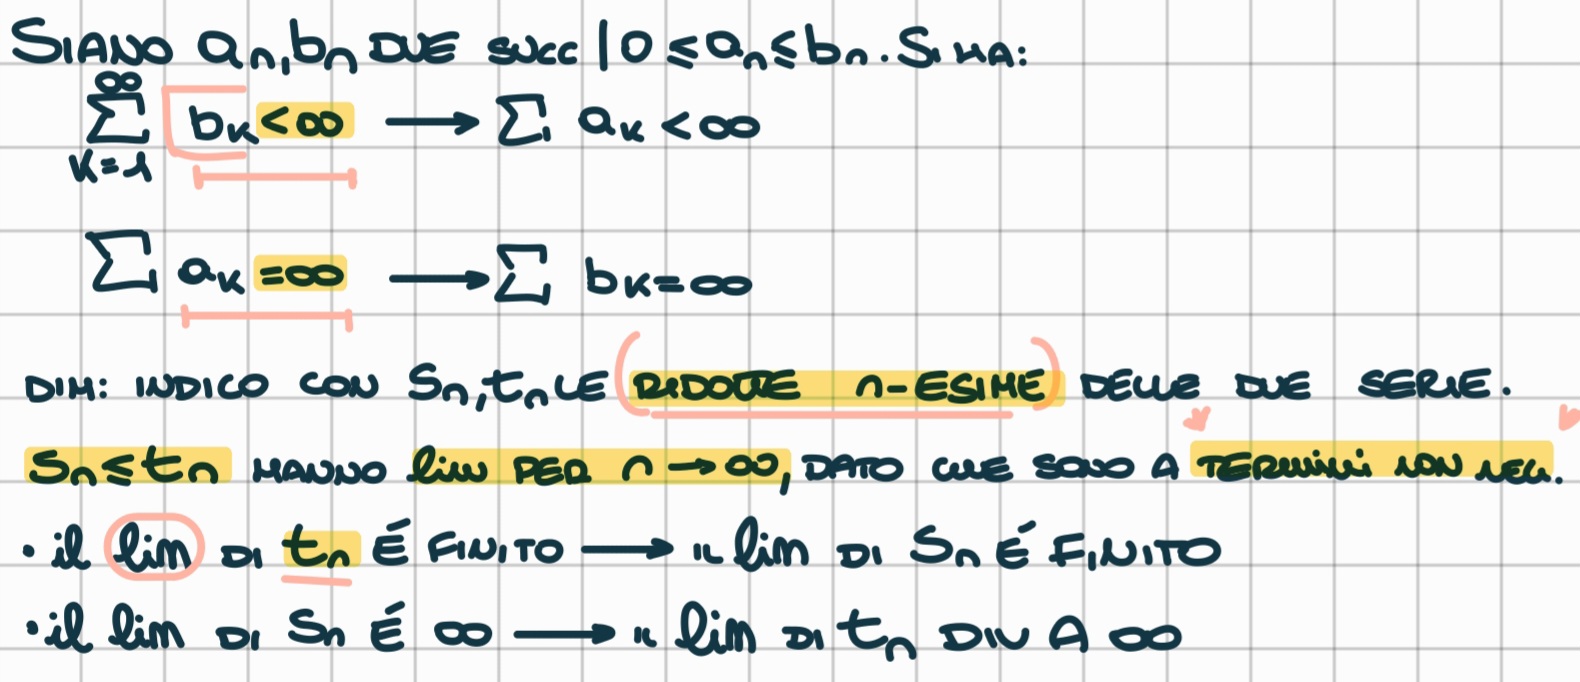 SIANO an, bn DUE SUCC | 0 ≤ an ≤ bn. SI HA:
∞
∑ bK < ∞ → ∑ aK < ∞
K=1
∑ aK = ∞ → ∑ bK = ∞
DIM: INDICO CON Sn, tn LE (RIDOTTE n-ESIME) DELLE DUE SERIE.
Sn ≤ tn HANNO lim PER n → ∞, DATO CHE SONO A TERMINI NON NEG.
• il lim DI tn É FINITO → IL lim DI Sn É FINITO
• il lim DI Sn É ∞ → IL lim DI tn DIV A ∞